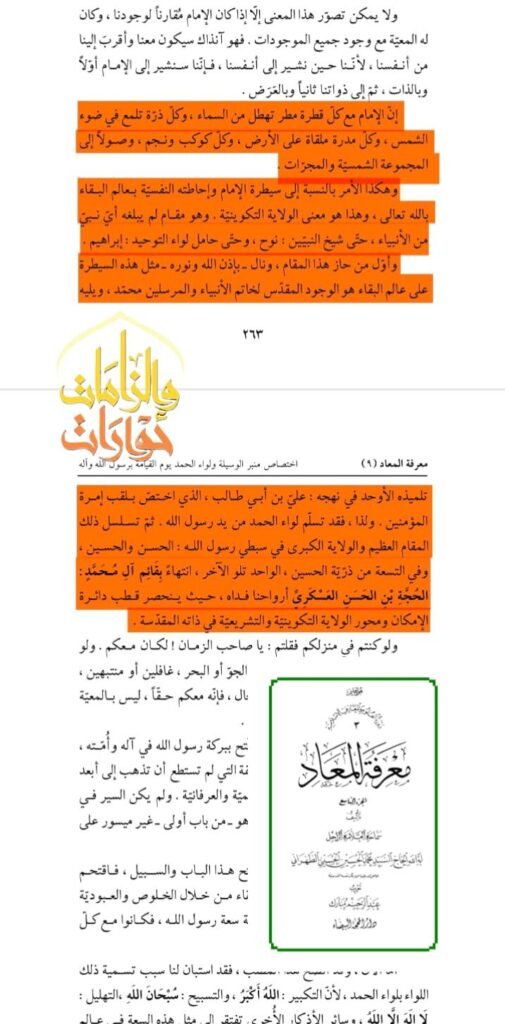 ولا يمكن تصوّر هذا المعنى إلّا إذا كان الإمام مُقارناً لوجودنا ، وكان
له المعيّة مع وجود جميع الموجودات . فهو آنذاك سيكون معنا وأقربَ إلينا
من أنفسنا ، لأنّنا حين نشير إلى أنفسنا ، فإنّنا سنشير إلى الإمام أوّلاً
وبالذات ، ثمّ إلى ذواتنا ثانياً وبالعَرَض .
إنّ الإمام مع كلّ قطرة مطر تهطل من السماء ، وكلّ ذرّة تلمع في ضوء
الشمس ، وكلّ مدرة ملقاة على الأرض ، وكلّ كوكب ونجم ، وصولاً إلى
المجموعة الشمسيّة والمجرّات .
وهكذا الأمر بالنسبة إلى سيطرة الإمام وإحاطته النفسيّة بعالم البقاء
بالله تعالى ، وهذا هو معنى الولاية التكوينيّة . وهو مقام لم يبلغه أيّ نبيّ
من الأنبياء ، حتّى شيخ النبيّين : نوح ، وحتّى حامل لواء التوحيد : إبراهيم .
وأوّل من حاز هذا المقام ، ونال ـ بإذن الله ونوره ـ مثل هذه السيطرة
على عالم البقاء هو الوجود المقدّس لخاتم الأنبياء والمرسلين محمّد ، ويليه
٢٦٣
حوارات
والزامات
معرفة المعاد (٩)    اختصاص منبر الوسيلة ولواء الحمد يوم القيامة برسول الله وآله
تلميذه الأوحد في نهجه : عليّ بن أبي طالب ، الذي اختصّ بلقب إمرة
المؤمنين . ولذا ، فقد تسلّم لواء الحمد من يد رسول الله . ثمّ تسلسل ذلك
المقام العظيم والولاية الكبرى في سبطي رسول الله : الحسن والحسين ،
وفي التسعة من ذرّيّة الحسين ، الواحد تلو الآخر ، انتهاءً بِقَائِمِ آلِ مُحَمَّدٍ :
الحُجَّةِ بْنِ الحَسَنِ العَسْكَرِيِّ أرواحنا فداه ، حيث ينحصر قطب دائرة
الإمكان ومحور الولاية التكوينيّة والتشريعيّة في ذاته المقدّسة .
ولو كنتم في منزلكم فقلتم : يا صاحب الزمان ! لكان معكم . ولو
الجوّ أو البحر ، غافلين أو منتبهين ،
ال ، فإنّه معكم حقّاً ، ليس بالمعيّة
.
تح ببركة رسول الله في آله وأُمّته ،
قة التي لم تستطع أن تذهب إلى أبعد
ميّة والعرفانيّة . ولم يكن السير في
هو ـ من باب أولى ـ غير ميسور على
ح هذا الباب والسبيل ، فاقتحم
ناء من خلال الخلوص والعبوديّة
ة سعة رسول الله ، فكانوا مع كلّ
٣
معرفة المعاد
الجزء التاسع
تأليف
سماحة العلامة الراحل
آية الله الحاج السيد محمد الحسين الحسيني الطهراني
تعريب
عبد الرحيم مبارك
دار المحجة البيضاء
، فقد استبان لنا سبب تسمية ذلك
اللواء بلواء الحمد ، لأنّ التكبير : اللهُ أَكْبَرُ ، والتسبيح : سُبْحَانَ اللهِ ، التهليل :
لَا إلَهَ إلَّا اللهُ ، وسائر الأذكار الأُخرى تفتقر إلى مثل هذه السعة في عالم